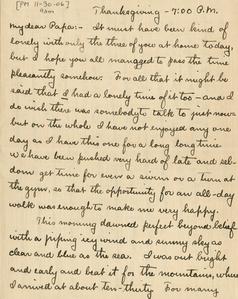 [PM 11-30-06]
9am
Thanksgiving - 7:00 P.M.
My dear Papa:- It must have been kind of
lonely with only the three of you at home today,
but I hope you all managed to pass the time
pleasantly somehow. For all that it might be
said that I had a lonely time of it too - and I
do wish there was somebody to talk to just now -
but on the whole I have not enjoyed any one
day as I have this one for a long long time.
We have been pushed very hard of late and sel-
dom get time for even a swim or a turn at
the gym, so that the opportunity for an all-day
walk was enough to make me very happy.
This morning dawned perfect beyond belief
with a piping icy wind and sunny sky as
clear and blue as the sea. I was out bright
and early and beat it for the mountains, where
I arrived at about ten-thirty. For many